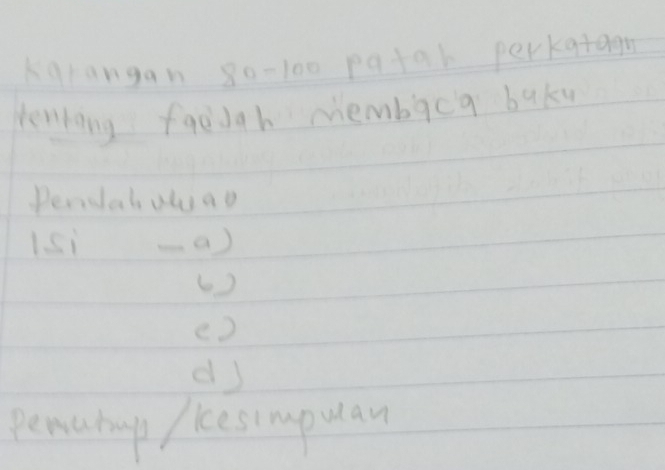 Karangan 80-100 patah perkataan
tentang faedah membaca buku
Pendahuluan
Isi - a)
b)
c)
d)
Penutup/Kesimpulan